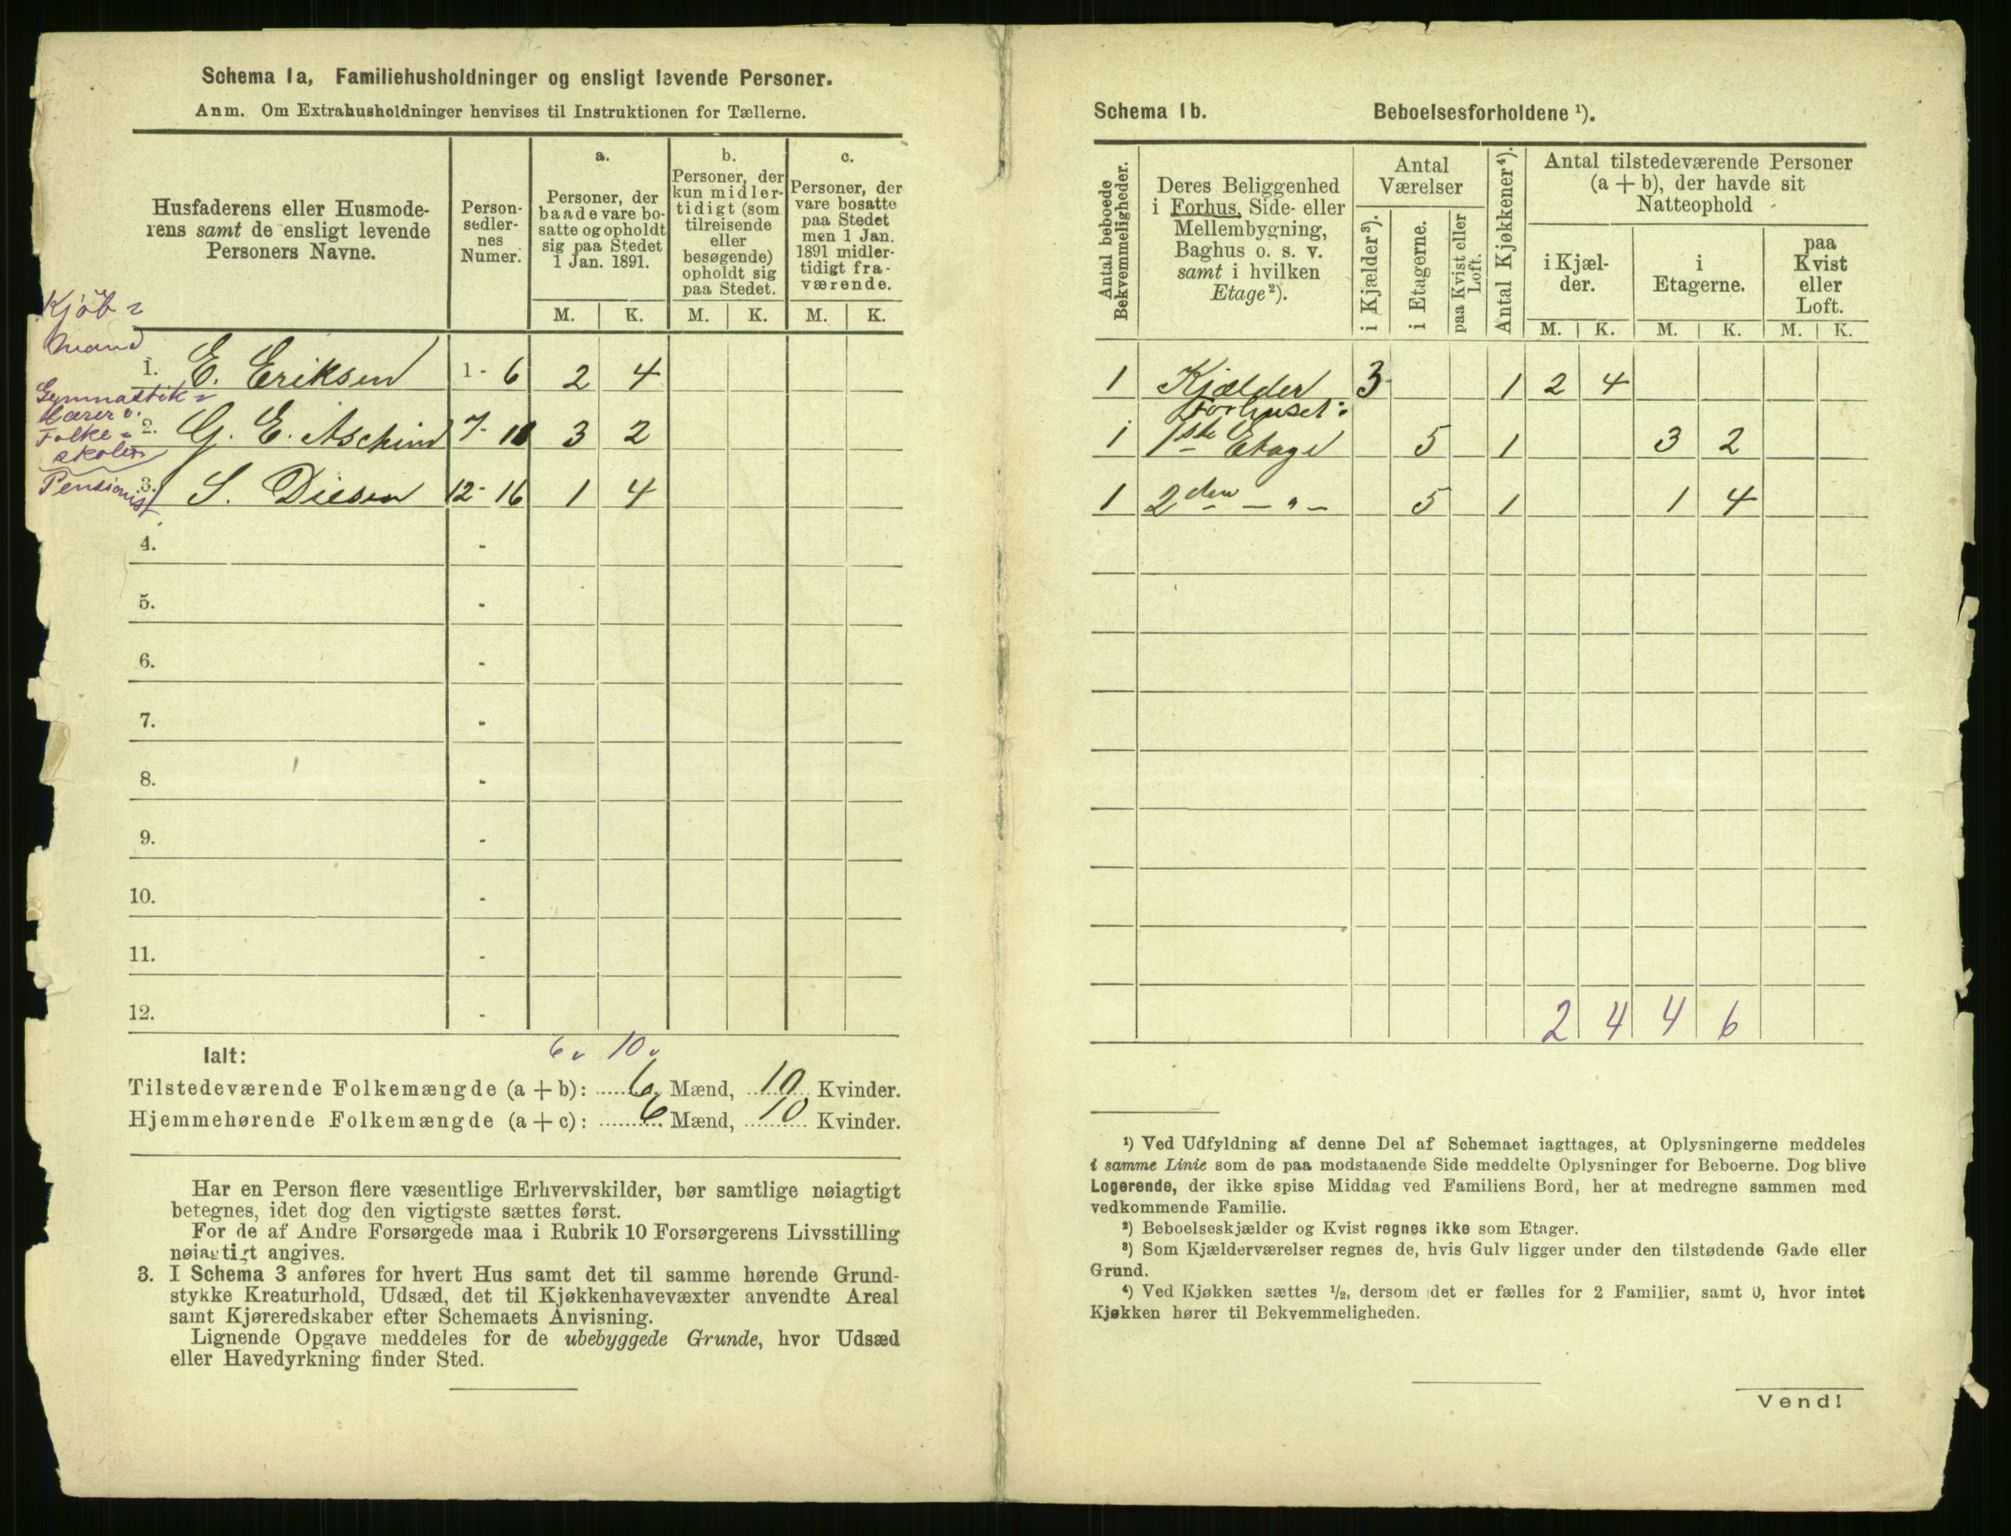 Schema 1a, Familiehusholdninger og ensligt levende Personer.
Anm. Om Extrahusholdninger henvises til Instruktionen for Tællerne.
Husfaderens eller Husmode-
rens samt de ensligt levende
Personers Navne.
Person-
sedler-
nes
Numer.
a.
Personer, der
baade vare bo-
satte og opholdt
sig paa Stedet
1 Jan. 1891.
b.
Personer, der
kun midler-
tidigt (som
tilreisende
eller
besøgende)
opholdt sig
paa Stedet.
c.
Personer, der
vare bosatte
paa Stedet
men 1 Jan.
1891 midler-
tidigt fra-
værende.
M. K. M. K. M. K.
Kjøb-
mand
1. E. Eriksen 1-6 2 4
Gymnastik-
lærer v.
Folke-
skolen
2. G. E. Aschim 7-11 3 2
Pensionist
3. S. Diesen 12-16 1 4
4. -
5. -
6. -
7. -
8. -
9. -
10. -
11. -
12. -
6 v 10 v
Ialt:
Tilstedeværende Folkemængde (a + b): 6 Mænd, 10 Kvinder.
Hjemmehørende Folkemængde (a + c): 6 Mænd, 10 Kvinder.
Har en Person flere væsentlige Erhvervskilder, bør samtlige nøiagtigt
betegnes, idet dog den vigtigste sættes først.
For de af Andre Forsørgede maa i Rubrik 10 Forsørgerens Livsstilling
nøiagtigt angives.
3. I Schema 3 anføres for hvert Hus samt det til samme hørende Grund-
stykke Kreaturhold, Udsæd, det til Kjøkkenhavevæxter anvendte Areal
samt Kjøreredskaber efter Schemaets Anvisning.
Lignende Opgave meddeles for de ubebyggede Grunde, hvor Udsæd
eller Havedyrkning finder Sted.
Schema 1b. Beboelsesforholdene ¹).
Antal beboede
Bekvemmeligheder.
Deres Beliggenhed
i Forhus, Side- eller
Mellembygning,
Baghus o. s. v.
samt i hvilken
Etage²).
Antal
Værelser
i Kjælder³).
i Etagerne.
paa Kvist eller
Loft.
Antal Kjøkkener⁴).
Antal tilstedeværende Personer
(a + b), der havde sit
Natteophold
i Kjæl-
der.
i
Etagerne.
paa
Kvist
eller
Loft.
M. K. M. K. M. K.
1 Kjælder 3 1 2 4
Forhuset:
1 1ste Etage 5 1 3 2
1 2den — „ — 5 1 1 4
2 4 4 6
¹) Ved Udfyldning af denne Del af Schemaet iagttages, at Oplysningerne meddeles
i samme Linie som de paa modstaaende Side meddelte Oplysninger for Beboerne. Dog blive
Logerende, der ikke spise Middag ved Familiens Bord, her at medregne sammen med
vedkommende Familie.
²) Beboelseskjælder og Kvist regnes ikke som Etager.
³) Som Kjælderværelser regnes de, hvis Gulv ligger under den tilstødende Gade eller
Grund.
⁴) Ved Kjøkken sættes ½, dersom det er fælles for 2 Familier, samt 0, hvor intet
Kjøkken hører til Bekvemmeligheden.
Vend!